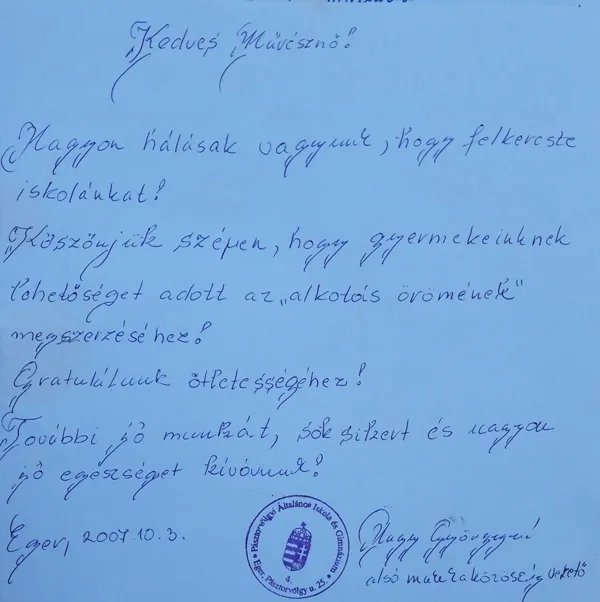 Kedves Művésznő!
Nagyon hálásak vagyunk, hogy felkereste
iskolánkat!
Köszönjük szépen, hogy gyermekeinknek
lehetőséget adott az „alkotás örömének"
megszerzéséhez!
Gratulálunk ötletességéhez!
További jó munkát, sok sikert és nagyon
jó egészséget kívánunk!
Eger, 2007.10.3.
Pásztorvölgyi Általános Iskola és Gimnázium
Eger, Pásztorvölgy u. 25.
4.
Nagy Györgyné
alsó munkaközösség vezető